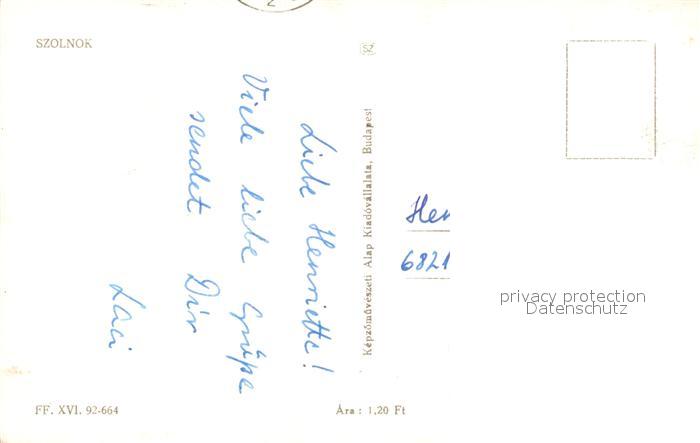 2
SZOLNOK
SZ
Liebe Henriette!
Viele liebe Grüße
sendet Dir
Láci
Képzőművészeti Alap Kiadóvállalata, Budapest
Hen
6821
privacy protection
Datenschutz
FF. XVI. 92-664
Ára : 1,20 Ft